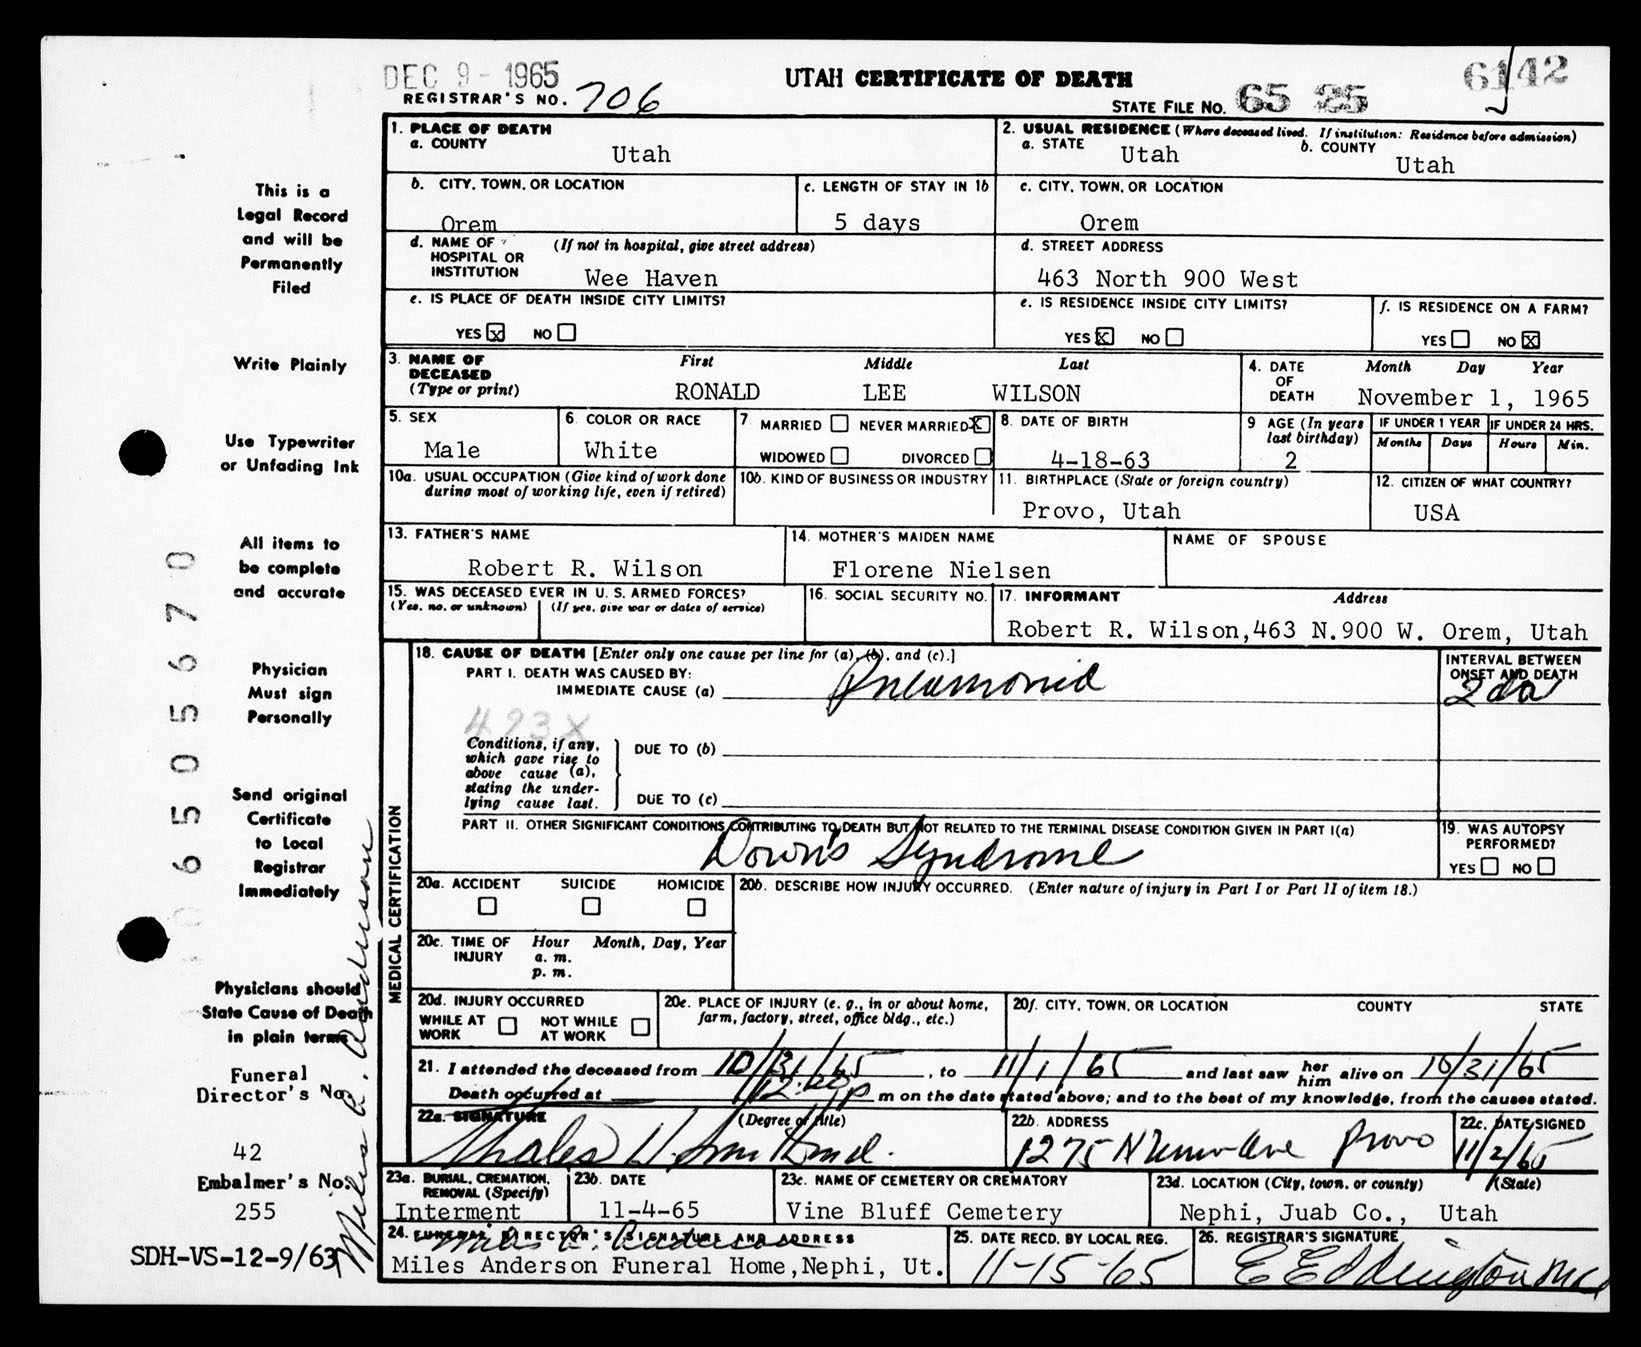 DEC 9 - 1965
UTAH CERTIFICATE OF DEATH
6142
REGISTRAR'S NO. 706
STATE FILE NO. 65 25
1. PLACE OF DEATH
a. COUNTY
Utah
2. USUAL RESIDENCE (Where deceased lived. If institution: Residence before admission)
a. STATE Utah b. COUNTY Utah
b. CITY, TOWN, OR LOCATION
Orem
c. LENGTH OF STAY IN 1b
5 days
c. CITY, TOWN, OR LOCATION
Orem
d. NAME OF HOSPITAL OR INSTITUTION (If not in hospital, give street address)
Wee Haven
d. STREET ADDRESS
463 North 900 West
e. IS PLACE OF DEATH INSIDE CITY LIMITS?
YES X NO
e. IS RESIDENCE INSIDE CITY LIMITS?
YES X NO
f. IS RESIDENCE ON A FARM?
YES NO X
3. NAME OF DECEASED (Type or print) First Middle Last
RONALD LEE WILSON
4. DATE OF DEATH Month Day Year
November 1, 1965
5. SEX
Male
6. COLOR OR RACE
White
7 MARRIED NEVER MARRIED X
WIDOWED DIVORCED
8. DATE OF BIRTH
4-18-63
9 AGE (In years last birthday)
2
IF UNDER 1 YEAR
Months Days
IF UNDER 24 HRS.
Hours Min.
10a. USUAL OCCUPATION (Give kind of work done during most of working life, even if retired)
10b. KIND OF BUSINESS OR INDUSTRY
11. BIRTHPLACE (State or foreign country)
Provo, Utah
12. CITIZEN OF WHAT COUNTRY?
USA
13. FATHER'S NAME
Robert R. Wilson
14. MOTHER'S MAIDEN NAME
Florene Nielsen
NAME OF SPOUSE
15. WAS DECEASED EVER IN U. S. ARMED FORCES?
(Yes, no, or unknown) (If yes, give war or dates of service)
16. SOCIAL SECURITY NO.
17. INFORMANT Address
Robert R. Wilson,463 N.900 W. Orem, Utah
18. CAUSE OF DEATH [Enter only one cause per line for (a), (b), and (c).]
PART I. DEATH WAS CAUSED BY:
IMMEDIATE CAUSE (a) Pneumonia
INTERVAL BETWEEN ONSET AND DEATH
2 da
493X
Conditions, if any, which gave rise to above cause (a), stating the underlying cause last.
DUE TO (b)
DUE TO (c)
PART II. OTHER SIGNIFICANT CONDITIONS CONTRIBUTING TO DEATH BUT NOT RELATED TO THE TERMINAL DISEASE CONDITION GIVEN IN PART I(a)
Down's Syndrome
19. WAS AUTOPSY PERFORMED?
YES NO
20a. ACCIDENT SUICIDE HOMICIDE
20b. DESCRIBE HOW INJURY OCCURRED. (Enter nature of injury in Part I or Part II of item 18.)
20c. TIME OF INJURY Hour Month, Day, Year
a. m.
p. m.
20d. INJURY OCCURRED
WHILE AT WORK NOT WHILE AT WORK
20e. PLACE OF INJURY (e. g., in or about home, farm, factory, street, office bldg., etc.)
20f. CITY, TOWN, OR LOCATION COUNTY STATE
21. I attended the deceased from 10/31/65, to 11/1/65 and last saw her him alive on 10/31/65
Death occurred at m on the date stated above; and to the best of my knowledge, from the causes stated.
22a. SIGNATURE (Degree or title)
Thales H. Smith md.
22b. ADDRESS
1275 N Ave Provo
22c. DATE SIGNED
11/2/65
23a. BURIAL, CREMATION, REMOVAL (Specify)
Interment
23b. DATE
11-4-65
23c. NAME OF CEMETERY OR CREMATORY
Vine Bluff Cemetery
23d. LOCATION (City, town, or county) (State)
Nephi, Juab Co., Utah
24. FUNERAL DIRECTOR'S SIGNATURE AND ADDRESS
Miles A. Anderson
Miles Anderson Funeral Home,Nephi, Ut.
25. DATE RECD. BY LOCAL REG.
11-15-65
26. REGISTRAR'S SIGNATURE
E E Eddington
MEDICAL CERTIFICATION
This is a
Legal Record
and will be
Permanently
Filed
Write Plainly
Use Typewriter
or Unfading Ink
All items to
be complete
and accurate
Physician
Must sign
Personally
Send original
Certificate
to Local
Registrar
Immediately
Physicians should
State Cause of Death
in plain terms
Funeral
Director's No.
42
Embalmer's No.
255
SDH-VS-12-9/63
Miles A. Anderson
0 6 5 0 5 6 7 0